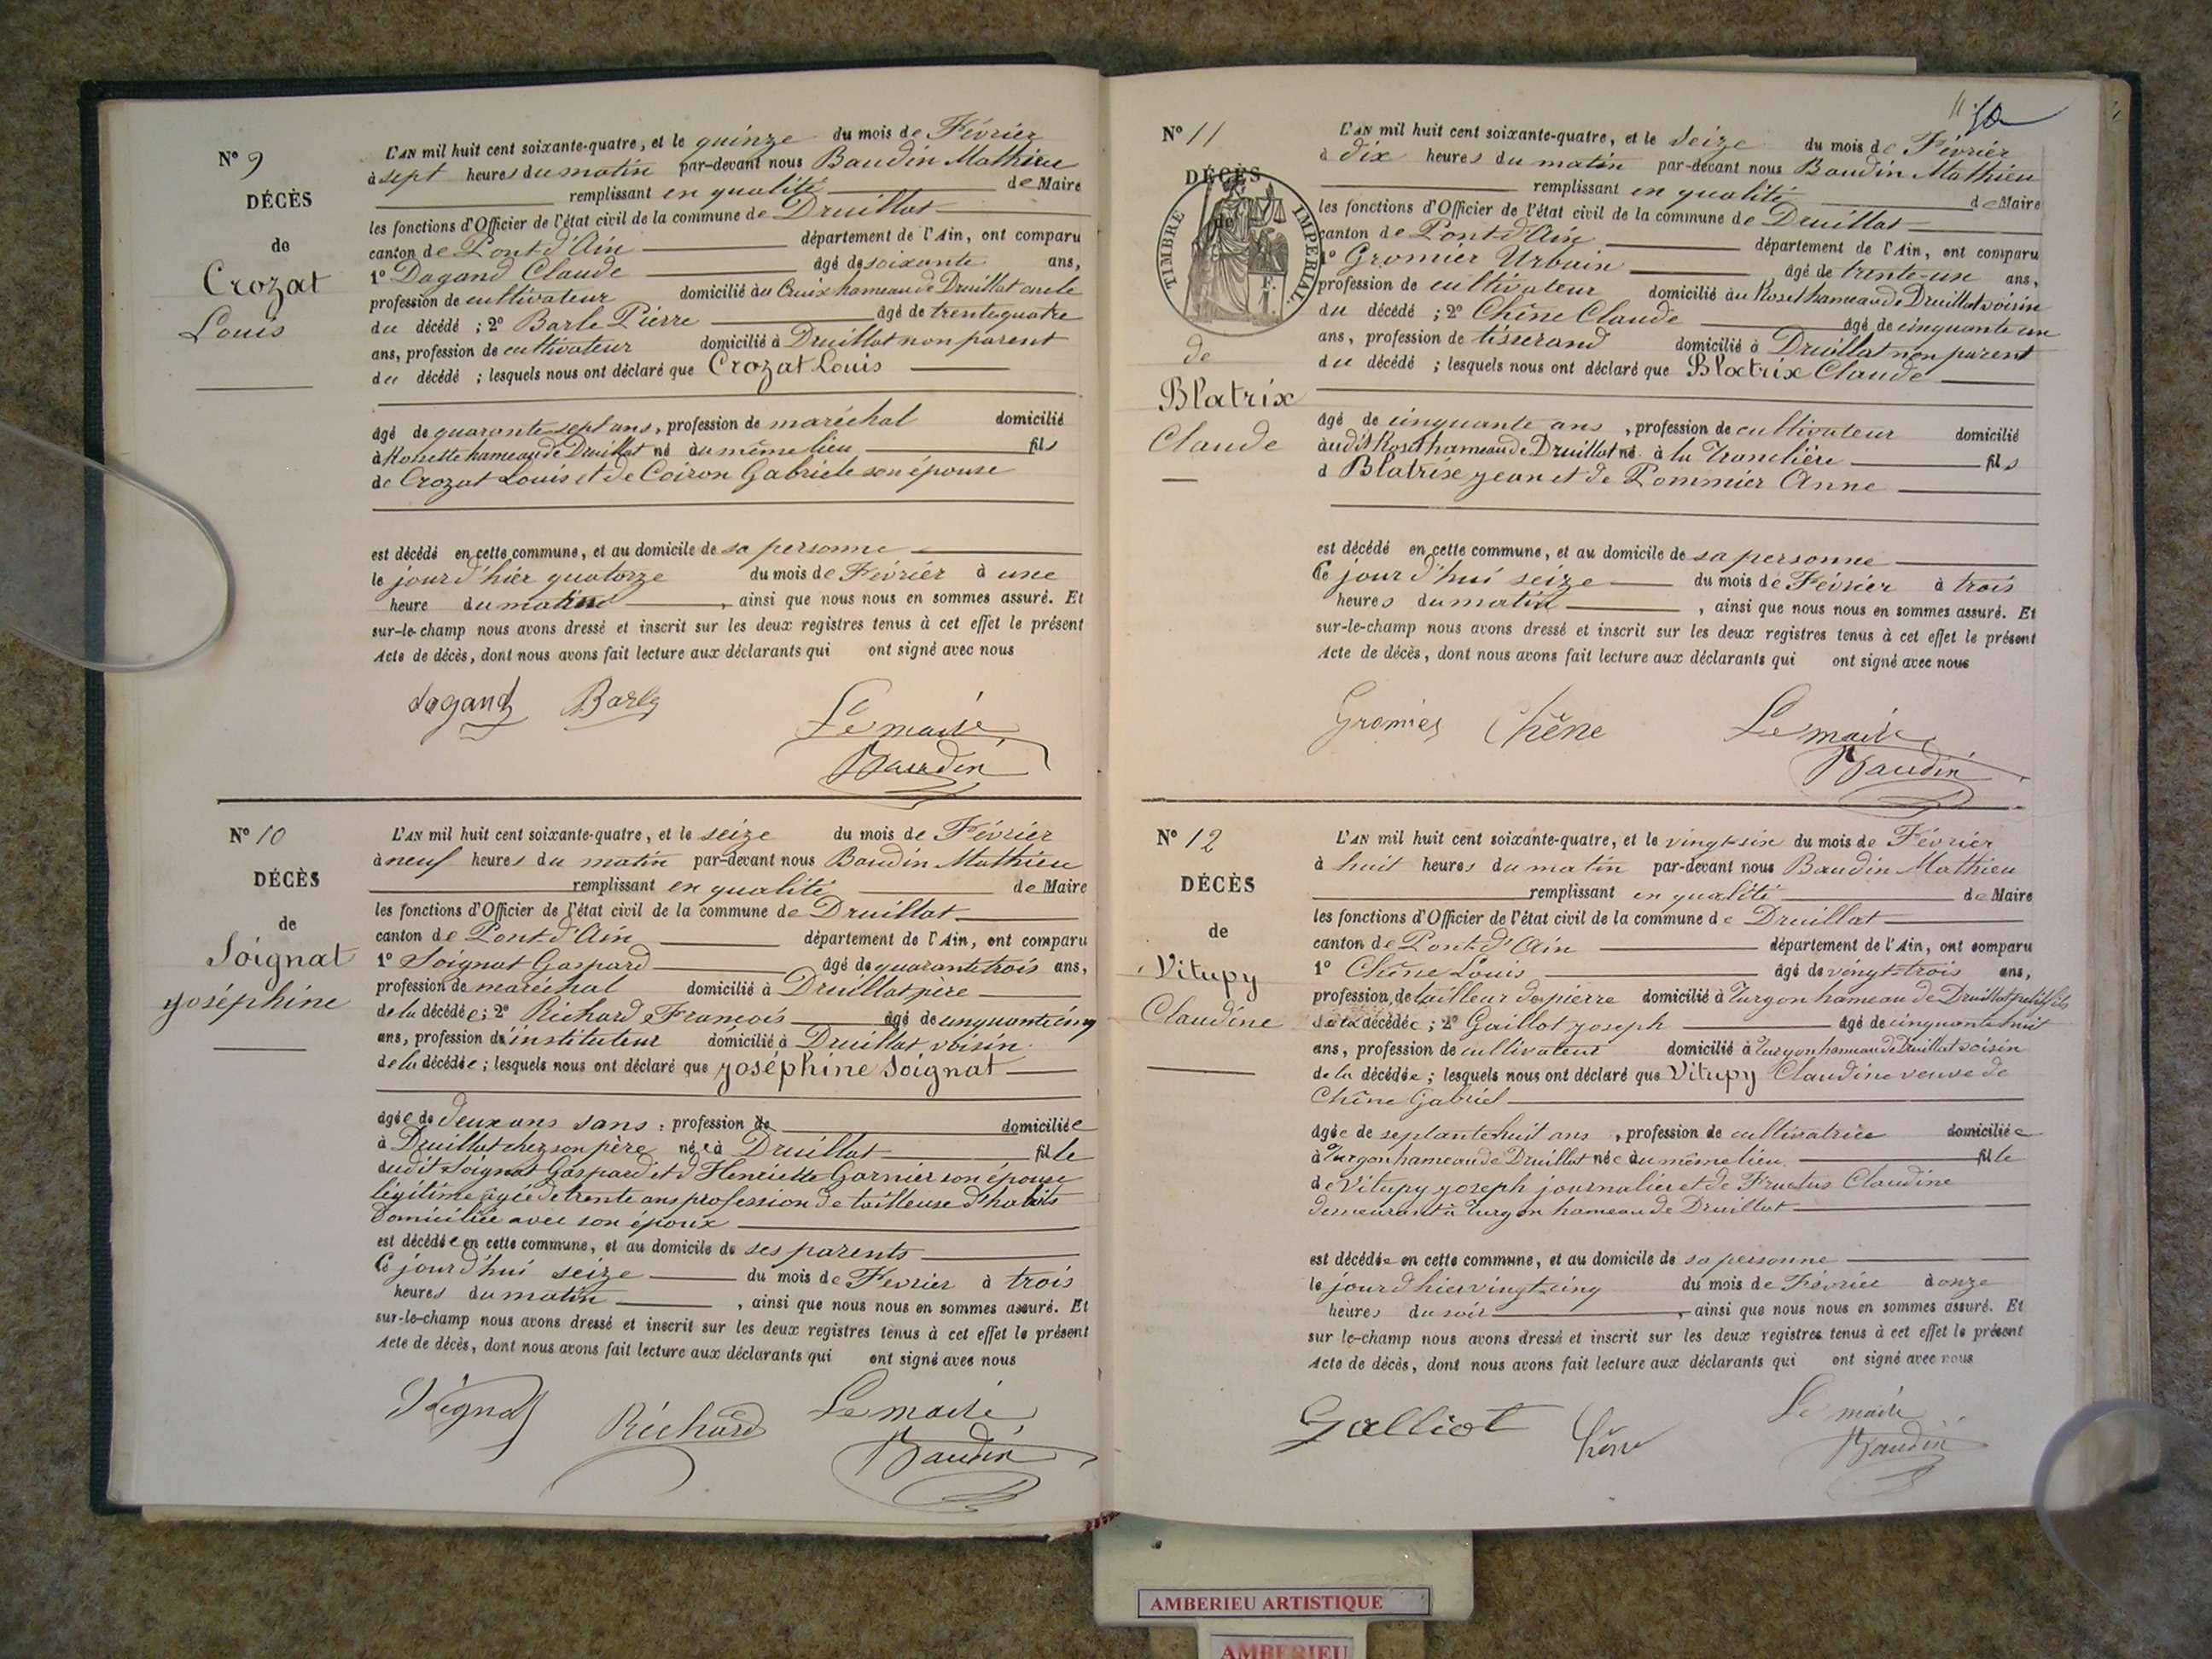 N° 9
DÉCÈS
de
Crozat
Louis
L'AN mil huit cent soixante-quatre, et le quinze du mois de Février
à sept heures du matin par-devant nous Baudin Mathieu
remplissant en qualité de Maire
les fonctions d'Officier de l'état civil de la commune de Druillat
canton de Pont-d'Ain département de l'Ain, ont comparu
1° Dagand Claude âgé de soixante ans,
profession de cultivateur domicilié au Cruix hameau de Druillat oncle
du décédé ; 2° Barle Pierre âgé de trente quatre
ans, profession de cultivateur domicilié à Druillat non parent
du décédé ; lesquels nous ont déclaré que Crozat Louis
âgé de quarante sept ans, profession de maréchal domicilié
à Rossette hameau de Druillat né au même lieu fils
de Crozat Louis et de Coiron Gabriele son épouse
est décédé en cette commune, et au domicile de sa personne
le jour d'hier quatorze du mois de Février à une
heure du matin, ainsi que nous nous en sommes assuré. Et
sur-le-champ nous avons dressé et inscrit sur les deux registres tenus à cet effet le présent
Acte de décès, dont nous avons fait lecture aux déclarants qui ont signé avec nous
dagand Barle
Le maire
Baudin
N° 10
DÉCÈS
de
Soignat
joséphine
L'AN mil huit cent soixante-quatre, et le seize du mois de Février
à neuf heures du matin par-devant nous Baudin Mathieu
remplissant en qualité de Maire
les fonctions d'Officier de l'état civil de la commune de Druillat
canton de Pont-d'Ain département de l'Ain, ont comparu
1° Soignat Gaspard âgé de quarante trois ans,
profession de maréchal domicilié à Druillat père
de la décédée ; 2° Richard François âgé de cinquante cinq
ans, profession d'instituteur domicilié à Druillat voisin
de la décédée ; lesquels nous ont déclaré que joséphine Soignat
âgée de deux ans sans, profession de domiciliée
à Druillat chez son père née à Druillat fille
dudit Soignat Gaspard et d'Henriette Garnier son épouse
légitime âgée de trente ans profession de tailleuse d'habits
domiciliée avec son époux
est décédée en cette commune, et au domicile de ses parents
Ce jourd'hui seize du mois de Février à trois
heures du matin, ainsi que nous nous en sommes assuré. Et
sur-le-champ nous avons dressé et inscrit sur les deux registres tenus à cet effet le présent
Acte de décès, dont nous avons fait lecture aux déclarants qui ont signé avec nous
Soignat Richard
Le maire
Baudin
11
N° 11
DÉCÈS
de
TIMBRE IMPERIAL
F.
de
Blatrix
Claude
L'AN mil huit cent soixante-quatre, et le Seize du mois de Février
à dix heures du matin par-devant nous Baudin Mathieu
remplissant en qualité de Maire
les fonctions d'Officier de l'état civil de la commune de Druillat
canton de Pont-d'Ain département de l'Ain, ont comparu
1° Gromier Urbain âgé de trente-un ans,
profession de cultivateur domicilié au Roset hameau de Druillat voisin
du décédé ; 2° Chêne Claude âgé de cinquante un
ans, profession de tisserand domicilié à Druillat non parent
du décédé ; lesquels nous ont déclaré que Blatrix Claude
âgé de cinquante ans, profession de cultivateur domicilié
audit Roset hameau de Druillat né à la Tranclière fils
d Blatrix jean et de Pommier Anne
est décédé en cette commune, et au domicile de sa personne
Ce jour d'hui seize du mois de Février à trois
heures du matin, ainsi que nous nous en sommes assuré. Et
sur-le-champ nous avons dressé et inscrit sur les deux registres tenus à cet effet le présent
Acte de décès, dont nous avons fait lecture aux déclarants qui ont signé avec nous
Gromier Chêne
Le maire
Baudin
N° 12
DÉCÈS
de
Vitupy
Claudine
L'AN mil huit cent soixante-quatre, et le vingt-six du mois de Février
à huit heures du matin par-devant nous Baudin Mathieu
remplissant en qualité de Maire
les fonctions d'Officier de l'état civil de la commune de Druillat
canton de Pont-d'Ain département de l'Ain, ont comparu
1° Chêne Louis âgé de vingt-trois ans,
profession de tailleur de pierre domicilié à Turgon hameau de Druillat petit fils
de la décédée ; 2° Gaillot joseph âgé de cinquante huit
ans, profession de cultivateur domicilié à Turgon hameau de Druillat voisin
de la décédée ; lesquels nous ont déclaré que Vitupy Claudine veuve de
Chêne Gabriel
âgée de septante huit ans, profession de cultivatrice domiciliée
à Turgon hameau de Druillat née au même lieu fille
de Vitupy joseph journalier et de Fructus Claudine
demeurant à Turgon hameau de Druillat
est décédée en cette commune, et au domicile de sa personne
le jour d'hier vingt-cinq du mois de Février à onze
heures du soir, ainsi que nous nous en sommes assuré. Et
sur le-champ nous avons dressé et inscrit sur les deux registres tenus à cet effet le présent
Acte de décès, dont nous avons fait lecture aux déclarants qui ont signé avec nous
Galliot Chêne
Le maire
Baudin
AMBERIEU ARTISTIQUE
AMBERIEU